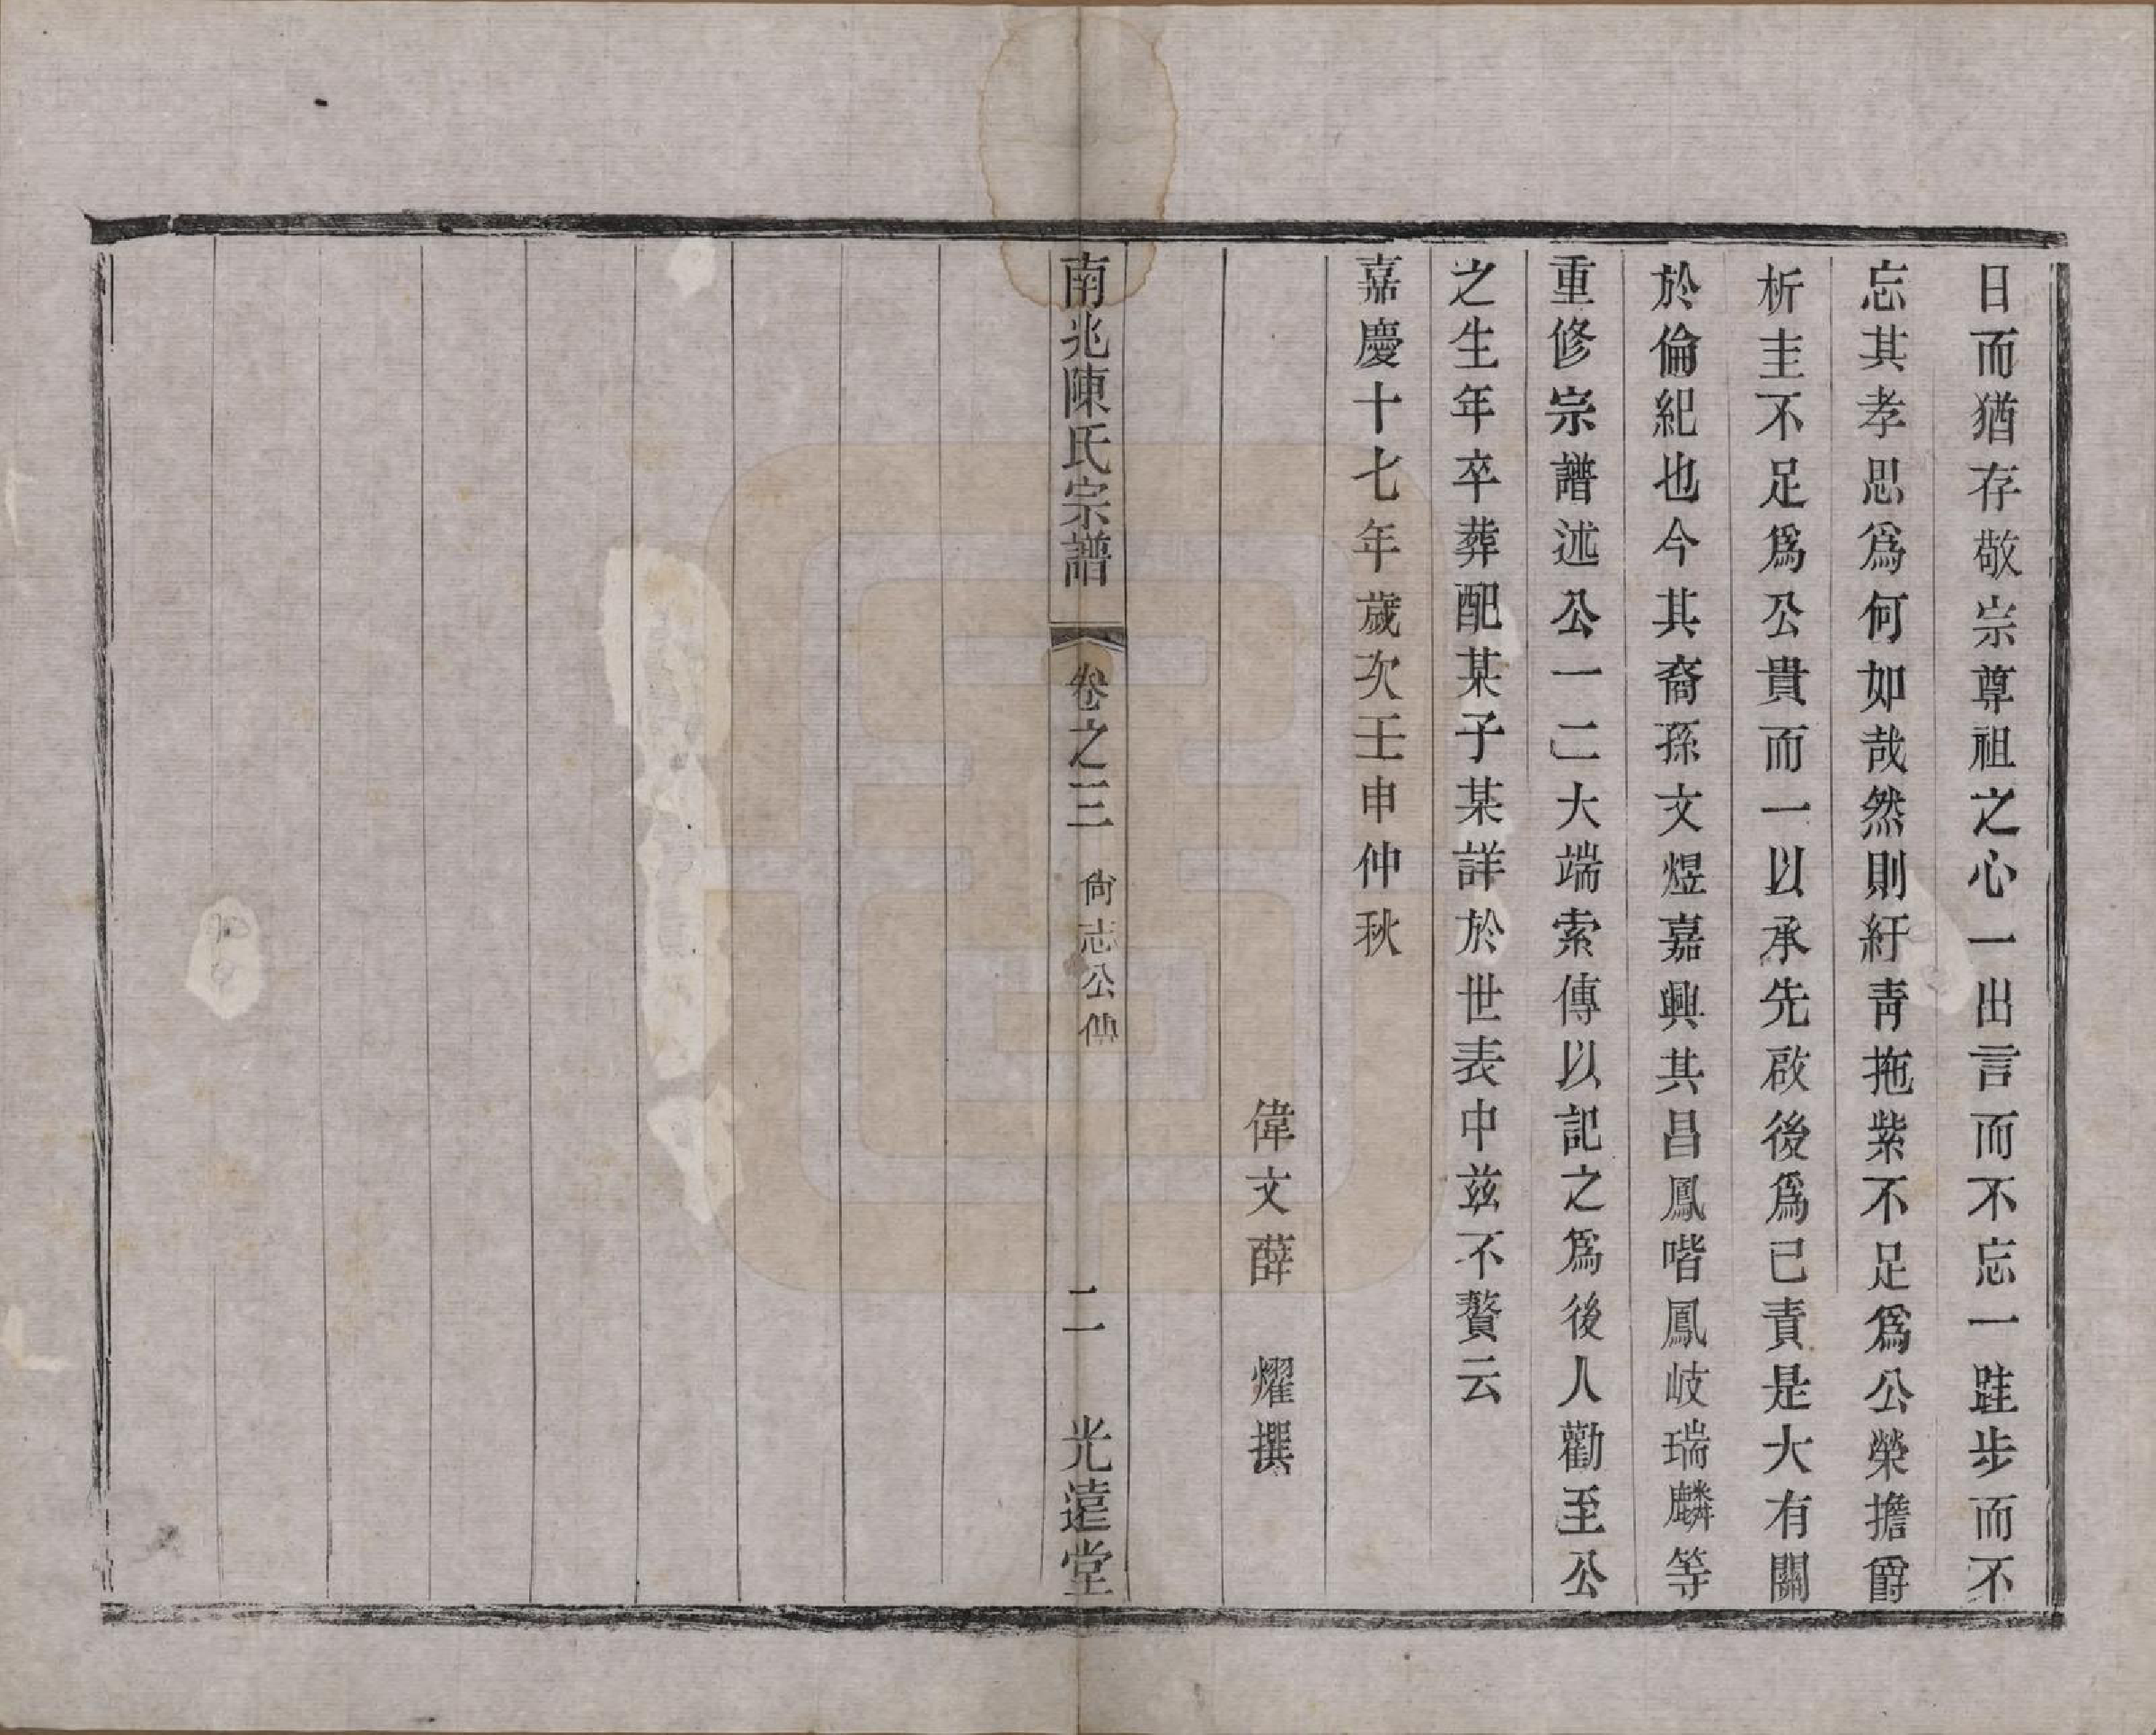 日而猶存敬宗尊祖之心一出言而不忘一跬步而不
忘其孝思爲何如哉然則紆青拖紫不足爲公榮擔爵
析圭不足爲公貴而一以承先啟後爲己責是大有關
於倫紀也今其裔孫文煜嘉興其昌鳳喈鳳岐瑞麟等
重修宗譜述公一二大端索傳以記之爲後人勸至公
之生年卒葬配某子某詳於世表中茲不贅云
嘉慶十七年歲次壬申仲秋
偉文薛　燿撰
南兆陳氏宗譜　卷之三　尙志公傳　二　光遠堂